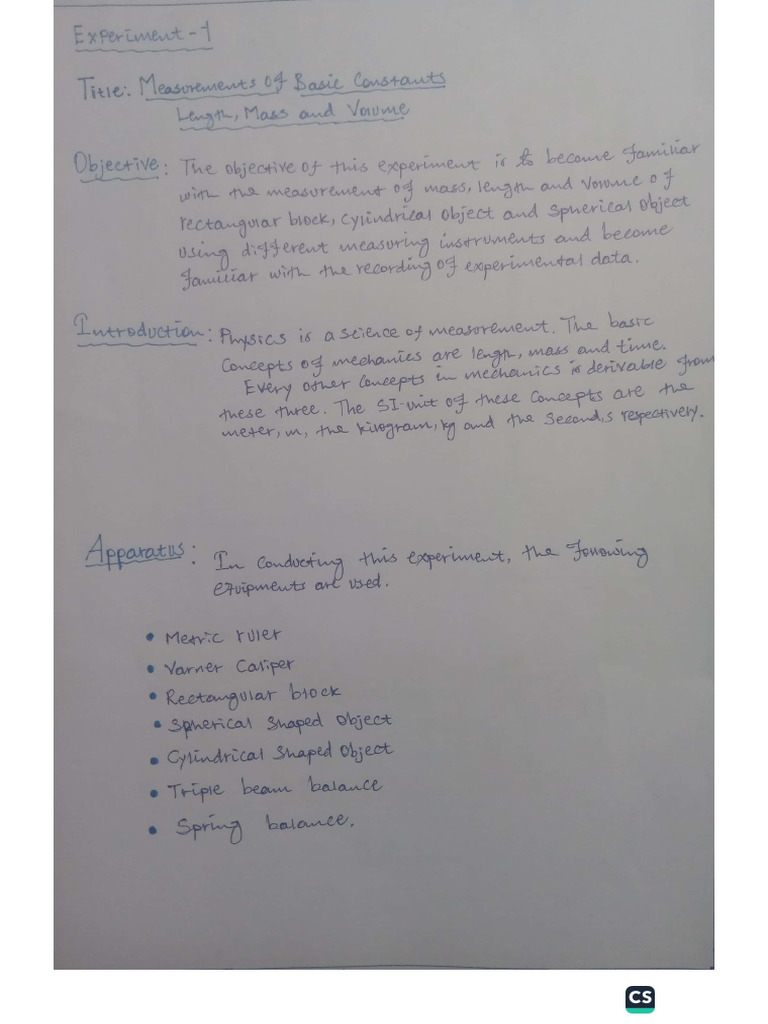 Experiment - 1
Title: Measurements Of Basic Constants
Length, Mass and Volume
Objective: The objective of this experiment is to become familiar
with the measurement of mass, length and volume of
rectangular block, cylindrical object and spherical object
using different measuring instruments and become
familiar with the recording of experimental data.
Introduction: Physics is a science of measurement. The basic
Concepts of mechanics are length, mass and time.
Every other concepts in mechanics is derivable from
these three. The SI-unit of these concepts are the
meter, m, the kilogram, kg and the second, s respectively.
Apparatus: In conducting this experiment, the following
equipments are used.
• Metric ruler
• Varner Caliper
• Rectangular block
• Spherical shaped object
• Cylindrical shaped object
• Triple beam balance
• Spring balance.
CS